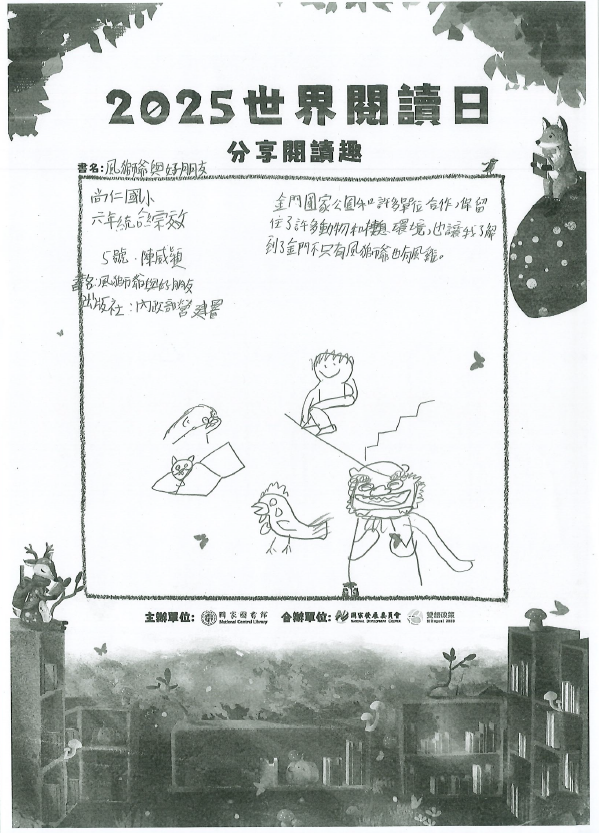 2025世界閱讀日
分享閱讀趣
書名:風獅爺與好朋友
尚仁國小
六年
5號 陳威穎
書名:風獅爺與好朋友
出版社:內政部營建署
金門國家公園和許多單位合作,保留
住了許多動物和 環境,也讓我了解
到了金門不只有風獅爺也有風雞。
主辦單位: 國家圖書館 National Central Library 合辦單位: 國家發展委員會 NATIONAL DEVELOPMENT COUNCIL 雙語政策 Bilingual 2030